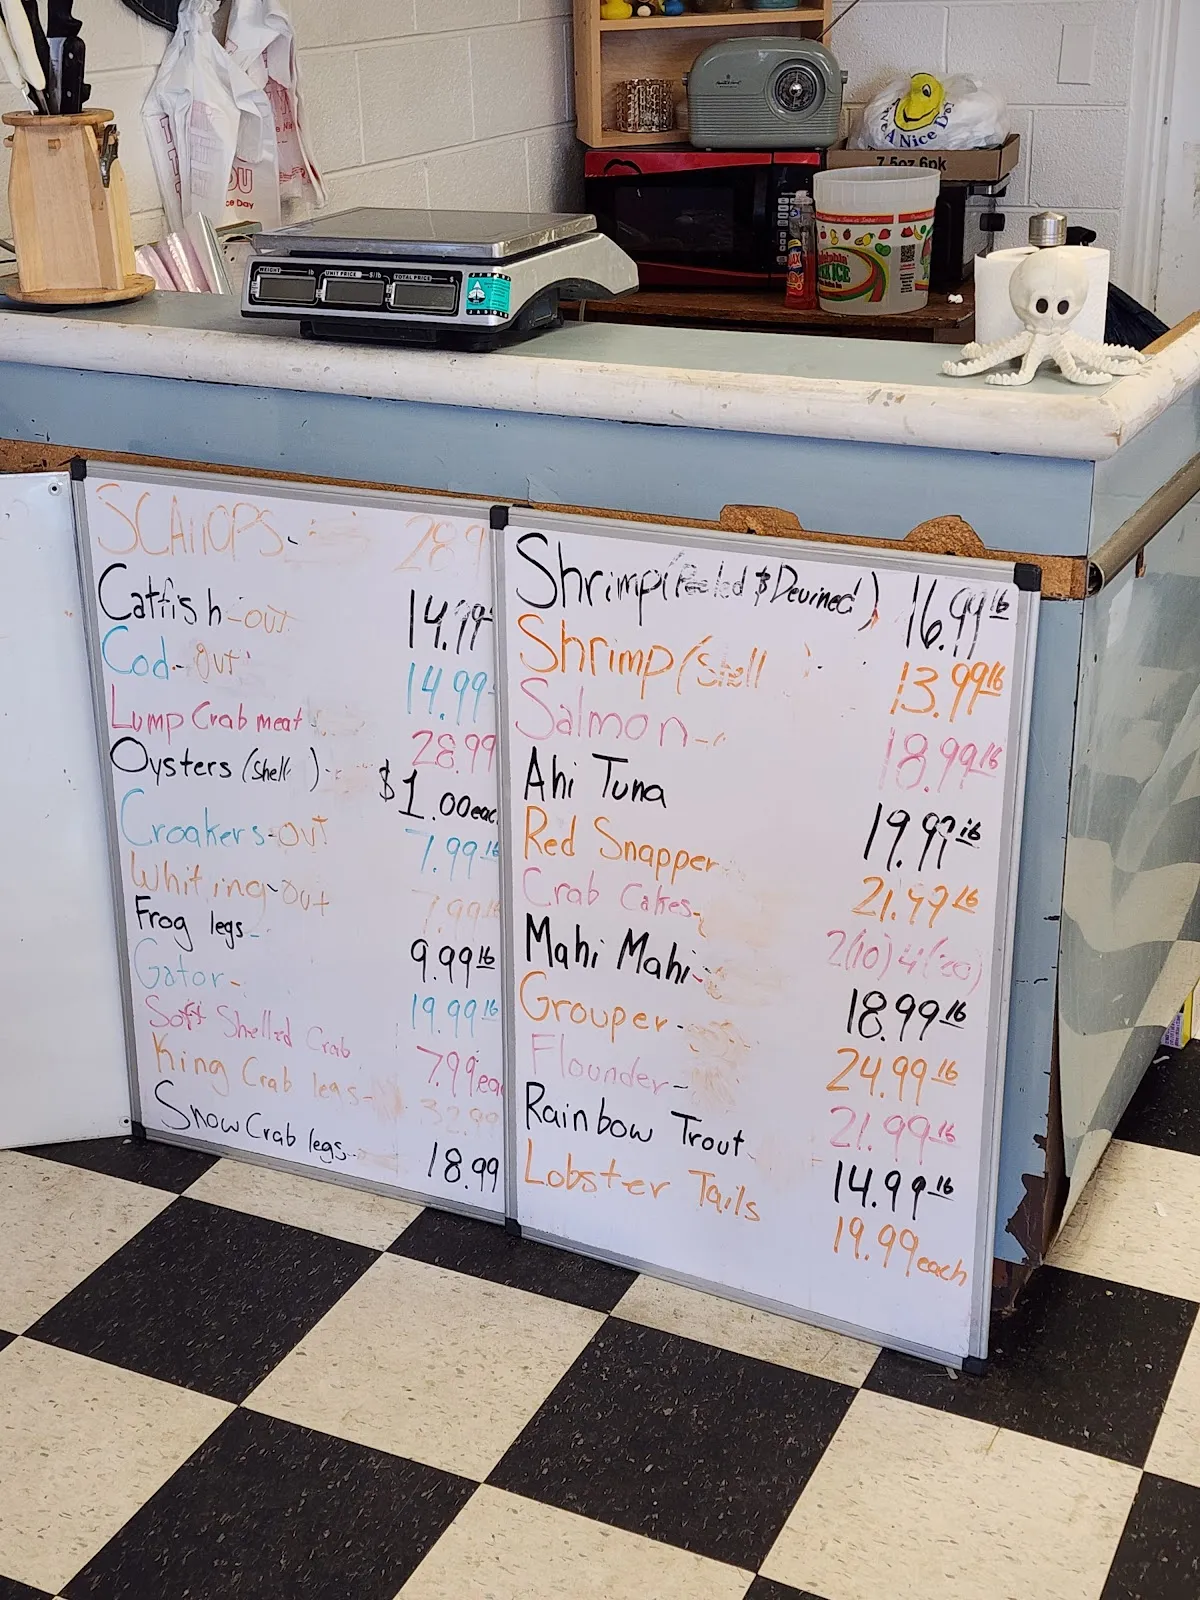 A Nice Day
7.5oz 6pk
OU
ce Day
ICE
WEIGHT lb UNIT PRICE $/lb TOTAL PRICE $
SCAllOPS- 28.9
Catfish-out 14.99
Cod-out 14.99
Lump Crab meat 28.99
Oysters (Shell ) $1.00 eac
Croakers-out 7.99 lb
Whiting-out 7.99 lb
Frog legs- 9.99 lb
Gator- 19.99 lb
Soft Shelled Crab 7.99 ea
King Crab legs- 32.99
Snow Crab legs- 18.99
Shrimp (Peeled $ Devined) 16.99 lb
Shrimp (Shell 13.99 lb
Salmon- 18.99 lb
Ahi Tuna 19.99 lb
Red Snapper 21.99 lb
Crab Cakes- 2(10) 4(20)
Mahi Mahi- 18.99 lb
Grouper- 24.99 lb
Flounder- 21.99 lb
Rainbow Trout 14.99 lb
Lobster Tails 19.99 each